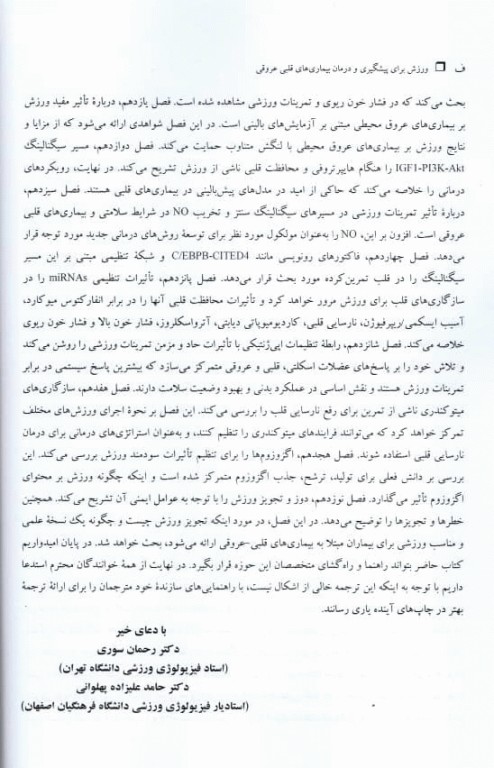 ف ❒ ورزش برای پیشگیری و درمان بیماری‌های قلبی عروقی
بحث می‌کند که در فشار خون ریوی و تمرینات ورزشی مشاهده شده است. فصل یازدهم، دربارهٔ تأثیر مفید ورزش
بر بیماری‌های عروق محیطی مبتنی بر آزمایش‌های بالینی است. در این فصل شواهدی ارائه می‌شود که از مزایا و
نتایج ورزش بر بیماری‌های عروق محیطی با لنگش متناوب حمایت می‌کند. فصل دوازدهم، مسیر سیگنالینگ
IGF1-PI3K-Akt را هنگام هایپرتروفی و محافظت قلبی ناشی از ورزش تشریح می‌کند. در نهایت، رویکردهای
درمانی را خلاصه می‌کند که حاکی از امید در مدل‌های پیش‌بالینی در بیماری‌های قلبی هستند. فصل سیزدهم،
دربارهٔ تأثیر تمرینات ورزشی در مسیرهای سیگنالینگ سنتز و تخریب NO در شرایط سلامتی و بیماری‌های قلبی
عروقی است. افزون بر این، NO را به‌عنوان مولکول مورد نظر برای توسعهٔ روش‌های درمانی جدید مورد توجه قرار
می‌دهد. فصل چهاردهم، فاکتورهای رونویسی مانند C/EBPB-CITED4 و شبکهٔ تنظیمی مبتنی بر این مسیر
سیگنالینگ را در قلب تمرین‌کرده مورد بحث قرار می‌دهد. فصل پانزدهم، تأثیرات تنظیمی miRNAs را در
سازگاری‌های قلب برای ورزش مرور خواهد کرد و تأثیرات محافظت قلبی آنها را در برابر انفارکتوس میوکارد،
آسیب ایسکمی/ریپرفیوژن، نارسایی قلبی، کاردیومیوپاتی دیابتی، آترواسکلروز، فشار خون بالا و فشار خون ریوی
خلاصه می‌کند. فصل شانزدهم، رابطهٔ تنظیمات اپی‌ژنتیکی با تأثیرات حاد و مزمن تمرینات ورزشی را روشن می‌کند
و تلاش خود را بر پاسخ‌های عضلات اسکلتی، قلبی و عروقی متمرکز می‌سازد که بیشترین پاسخ سیستمی در برابر
تمرینات ورزش هستند و نقش اساسی در عملکرد بدنی و بهبود وضعیت سلامت دارند. فصل هفدهم، سازگاری‌های
میتوکندری ناشی از تمرین برای رفع نارسایی قلب را بررسی می‌کند. این فصل بر نحوهٔ اجرای ورزش‌های مختلف
تمرکز خواهد کرد که می‌توانند فرایندهای میتوکندری را تنظیم کنند، و به‌عنوان استراتژی‌های درمانی برای درمان
نارسایی قلبی استفاده شوند. فصل هجدهم، اگزوزوم‌ها را برای تنظیم تأثیرات سودمند ورزش بررسی می‌کند. این
بررسی بر دانش فعلی برای تولید، ترشح، جذب اگزوزوم متمرکز شده است و اینکه چگونه ورزش بر محتوای
اگزوزوم تأثیر می‌گذارد. فصل نوزدهم، دوز و تجویز ورزش را با توجه به عوامل ایمنی آن تشریح می‌کند. همچنین
خطرها و تجویزها را توضیح می‌دهد. در این فصل، در مورد اینکه تجویز ورزش چیست و چگونه یک نسخهٔ علمی
و مناسب ورزشی برای بیماران مبتلا به بیماری‌های قلبی-عروقی ارائه می‌شود، بحث خواهد شد. در پایان امیدواریم
کتاب حاضر بتواند راهنما و راه‌گشای متخصصان این حوزه قرار بگیرد. در نهایت از همهٔ خوانندگان محترم استدعا
داریم با توجه به اینکه این ترجمه خالی از اشکال نیست، با راهنمایی‌های سازندهٔ خود مترجمان را برای ارائهٔ ترجمهٔ
بهتر در چاپ‌های آینده یاری رسانند.
با دعای خیر
دکتر رحمان سوری
(استاد فیزیولوژی ورزشی دانشگاه تهران)
دکتر حامد علیزاده پهلوانی
(استادیار فیزیولوژی ورزشی دانشگاه فرهنگیان اصفهان)